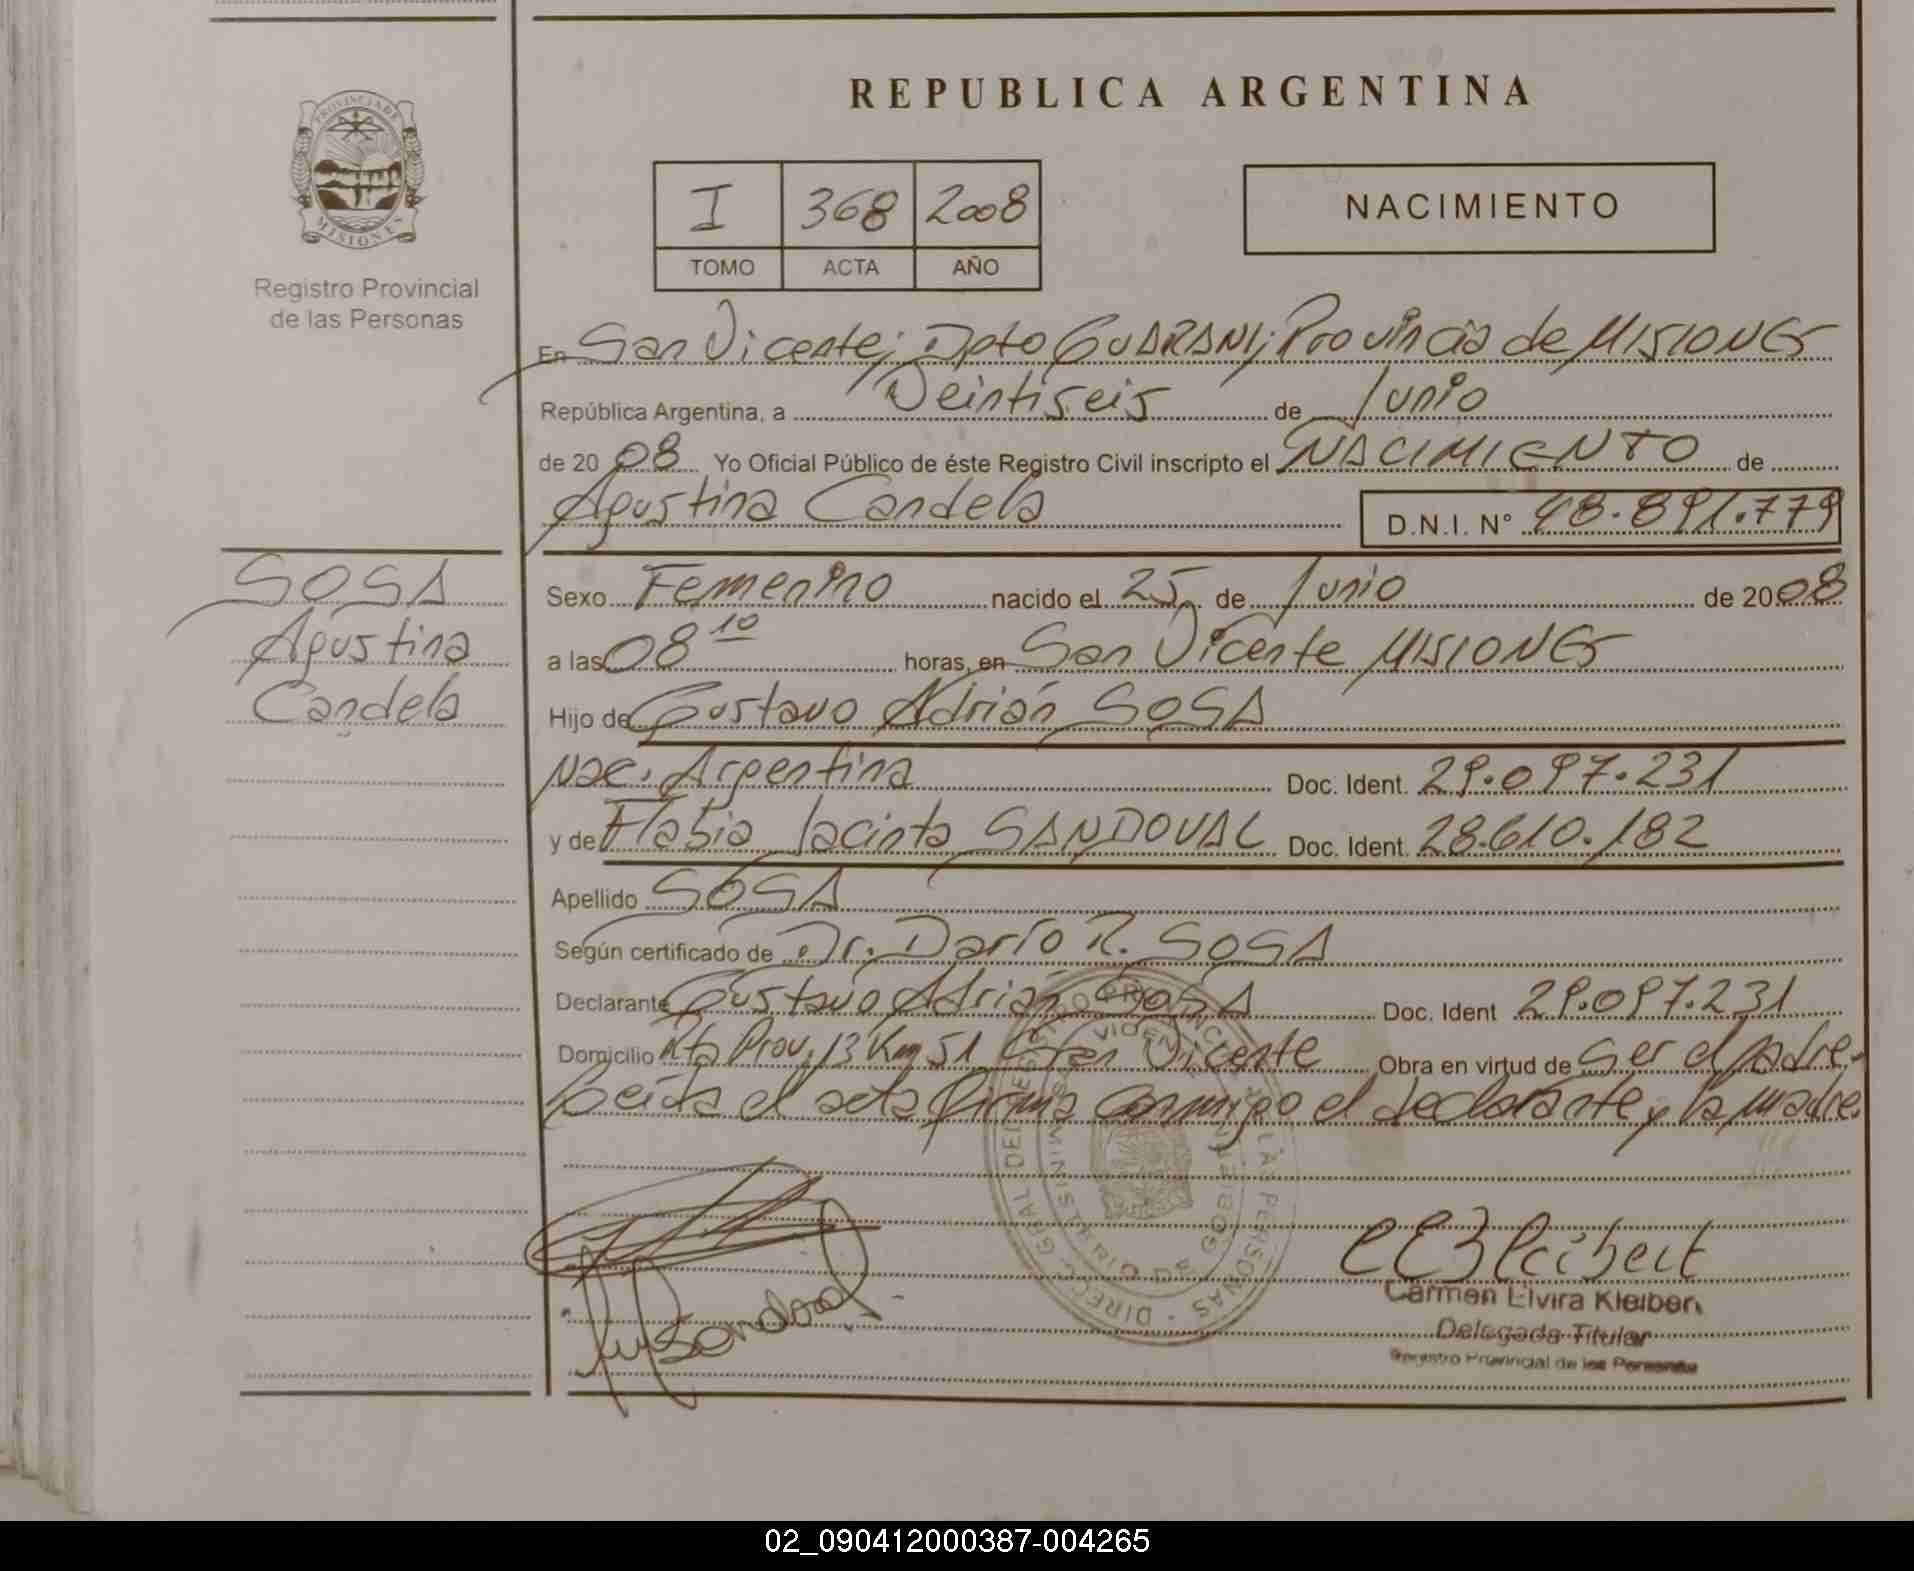 REPUBLICA ARGENTINA
PROVINCIA DE
MISIONES
Registro Provincial
de las Personas
I 368 2008
TOMO ACTA AÑO
NACIMIENTO
En San Vicente; Dpto GUARANI; Provincia de MISIONES
República Argentina, a Veintiseis de Junio
de 2008 Yo Oficial Público de éste Registro Civil inscripto el NACIMIENTO de
Agustina Candela D.N.I. N° 48.891.779
SOSA
Agustina
Candela
Sexo Femenino nacido el 25 de Junio de 2008
a las 08 10 horas, en San Vicente MISIONES
Hijo de Gustavo Adrián SOSA
Nac. Argentina Doc. Ident. 29.097.231
y de Flabia Jacinta SANDOVAL Doc. Ident. 28.610.182
Apellido SOSA
Según certificado de Dr. Darío R. SOSA
Declarante Gustavo Adrián SOSA Doc. Ident 29.097.231
Domicilio Rta Prov. 13 Km 51 San Vicente Obra en virtud de ser el padre.
Leída el acta firma conmigo el declarante y la madre.
DIRECC. GRAL DEL REGISTRO PROVINCIAL DE LAS PERSONAS
MINISTERIO DE GOBIERNO
Carmen Elvira Kleibert
Delegada Titular
Registro Provincial de las Personas
02_090412000387-004265